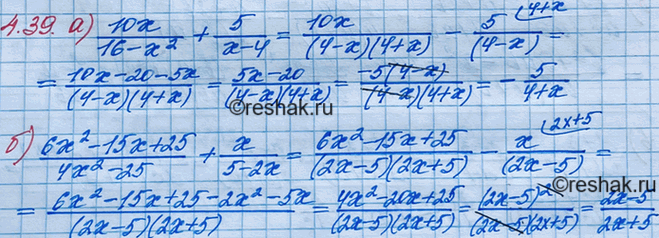 4.39. а) 10x/(16-x²) + 5/(x-4) = 10x/((4-x)(4+x)) - 5/(4-x) (4+x =
= (10x-20-5x)/((4-x)(4+x)) = (5x-20)/((4-x)(4+x)) = -5(4-x)/((4-x)(4+x)) = -5/(4+x)
©reshak.ru
б) (6x²-15x+25)/(4x²-25) + x/(5-2x) = (6x²-15x+25)/((2x-5)(2x+5)) - x/(2x-5) (2x+5 =
= (6x²-15x+25-2x²-5x)/((2x-5)(2x+5)) = (4x²-20x+25)/((2x-5)(2x+5)) = (2x-5)²/((2x-5)(2x+5)) = (2x-5)/(2x+5)
©reshak.ru